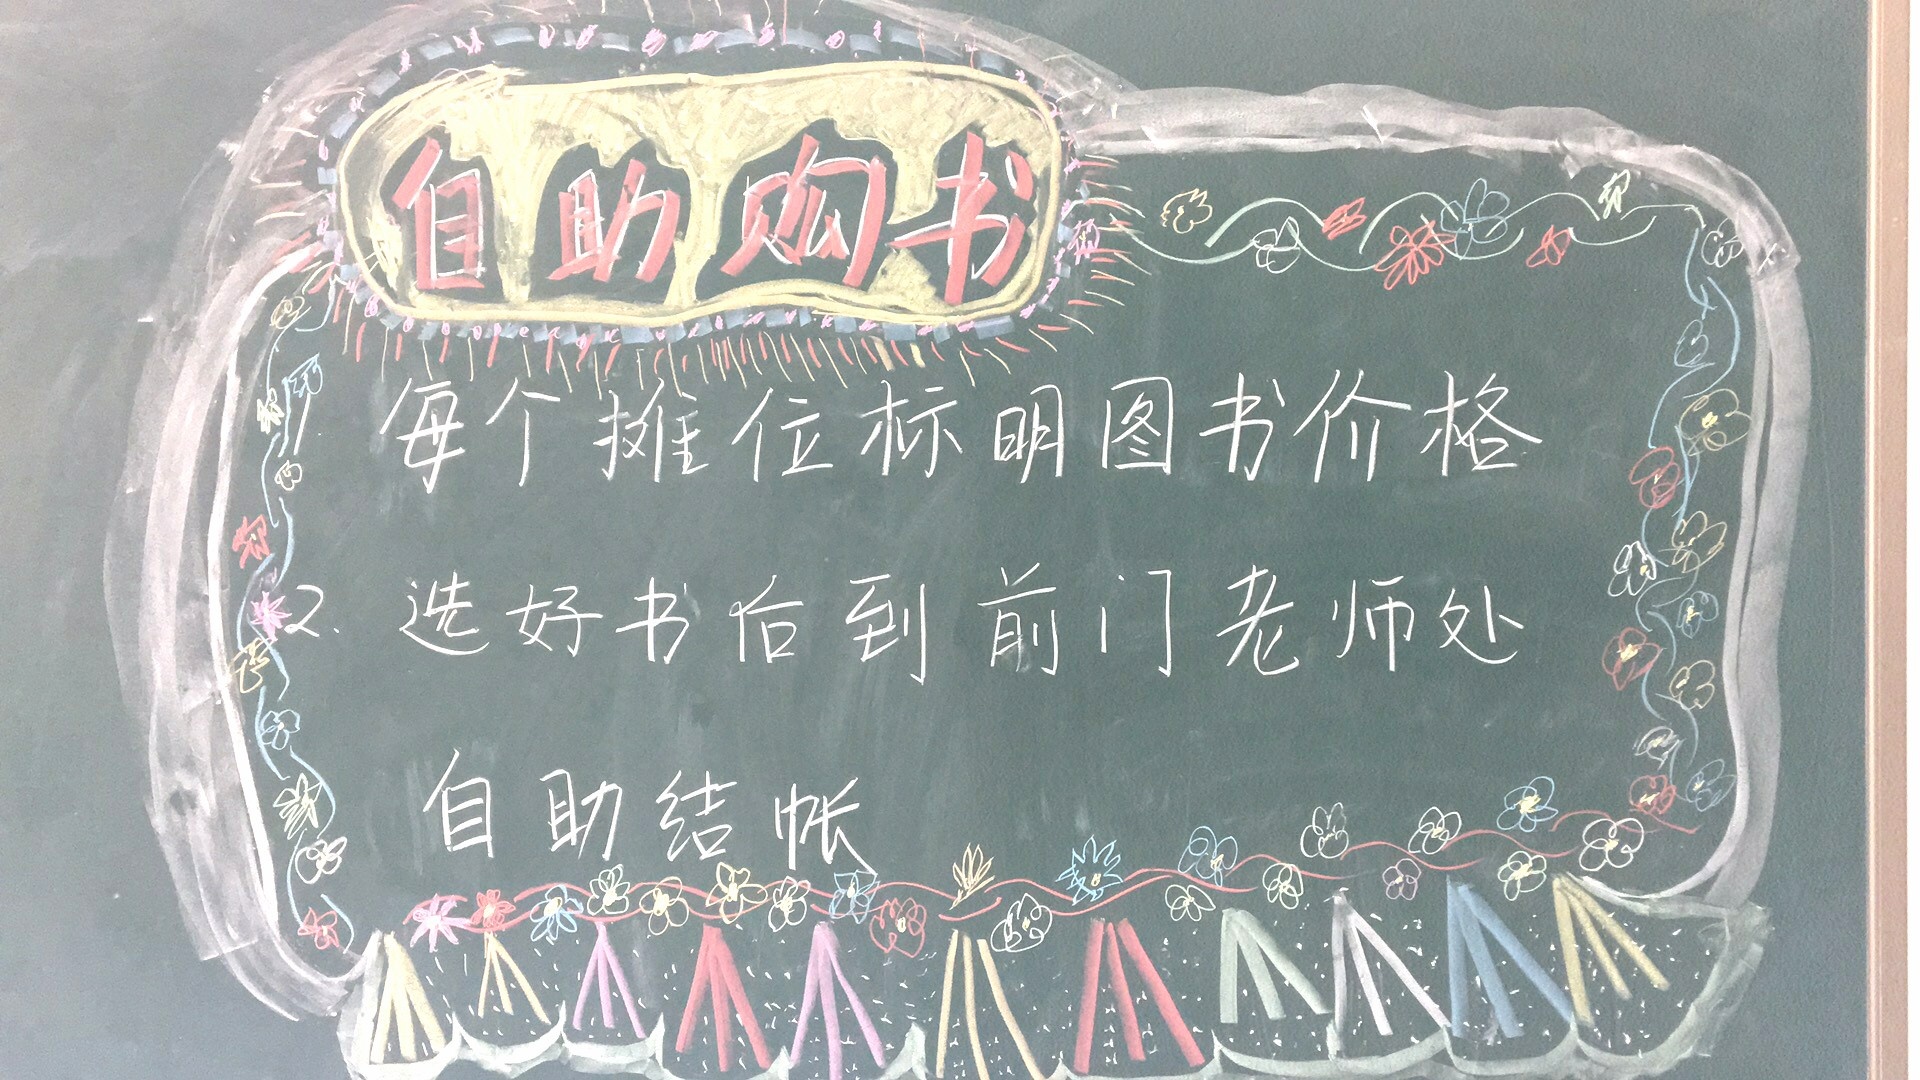 自助购书
1 每个摊位标明图书价格
2. 选好书后到前门老师处
自助结帐